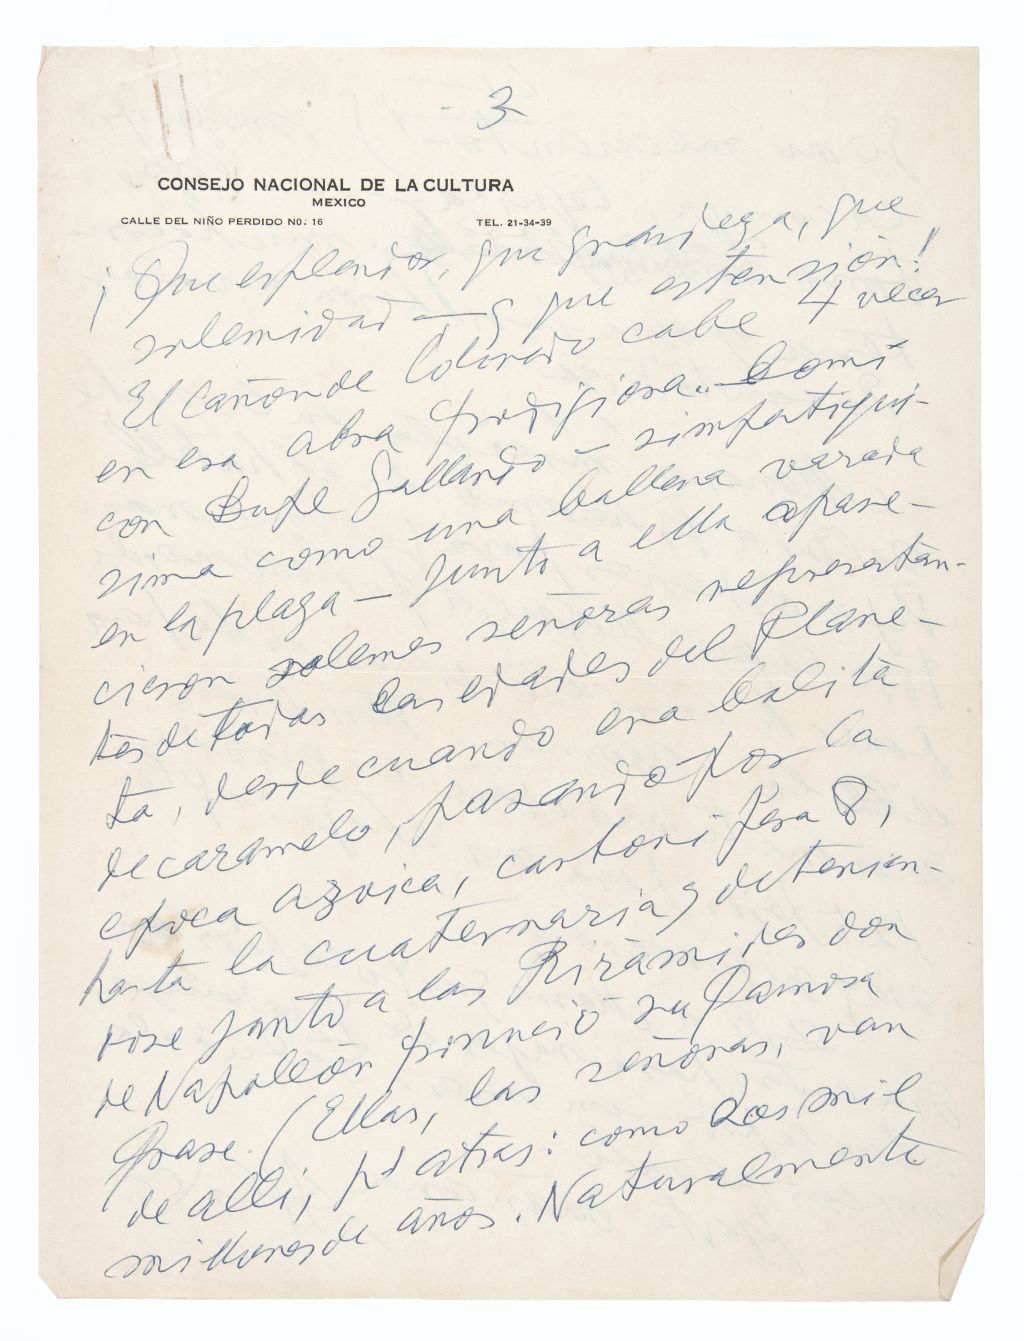 - 3
CONSEJO NACIONAL DE LA CULTURA
MEXICO
CALLE DEL NIÑO PERDIDO NO: 16 TEL. 21-34-39
¡Que esplendor, que grandeza, que
solemnidad — y que estensión!
El Cañon de Colorado cabe 4 veces
en esa obra prodigiosa.. Comí
con Lupe Gallardo — simpatiqui-
sima como una ballena varada
en la plaza — junto a ella apare-
cieron solemes señoras representan-
tes de todas las edades del Plane-
ta, desde cuando era bolita
de caramelo, pasando por la
epoca azoica, carboni pera 8,
hasta la cuaternaria y detenien-
dose junto a las Pirámides don
de Napoleón pronució su famosa
frase. (Ellas, las señoras, van
de alli, pa atras: como dos mil
millones de años. Naturalmente